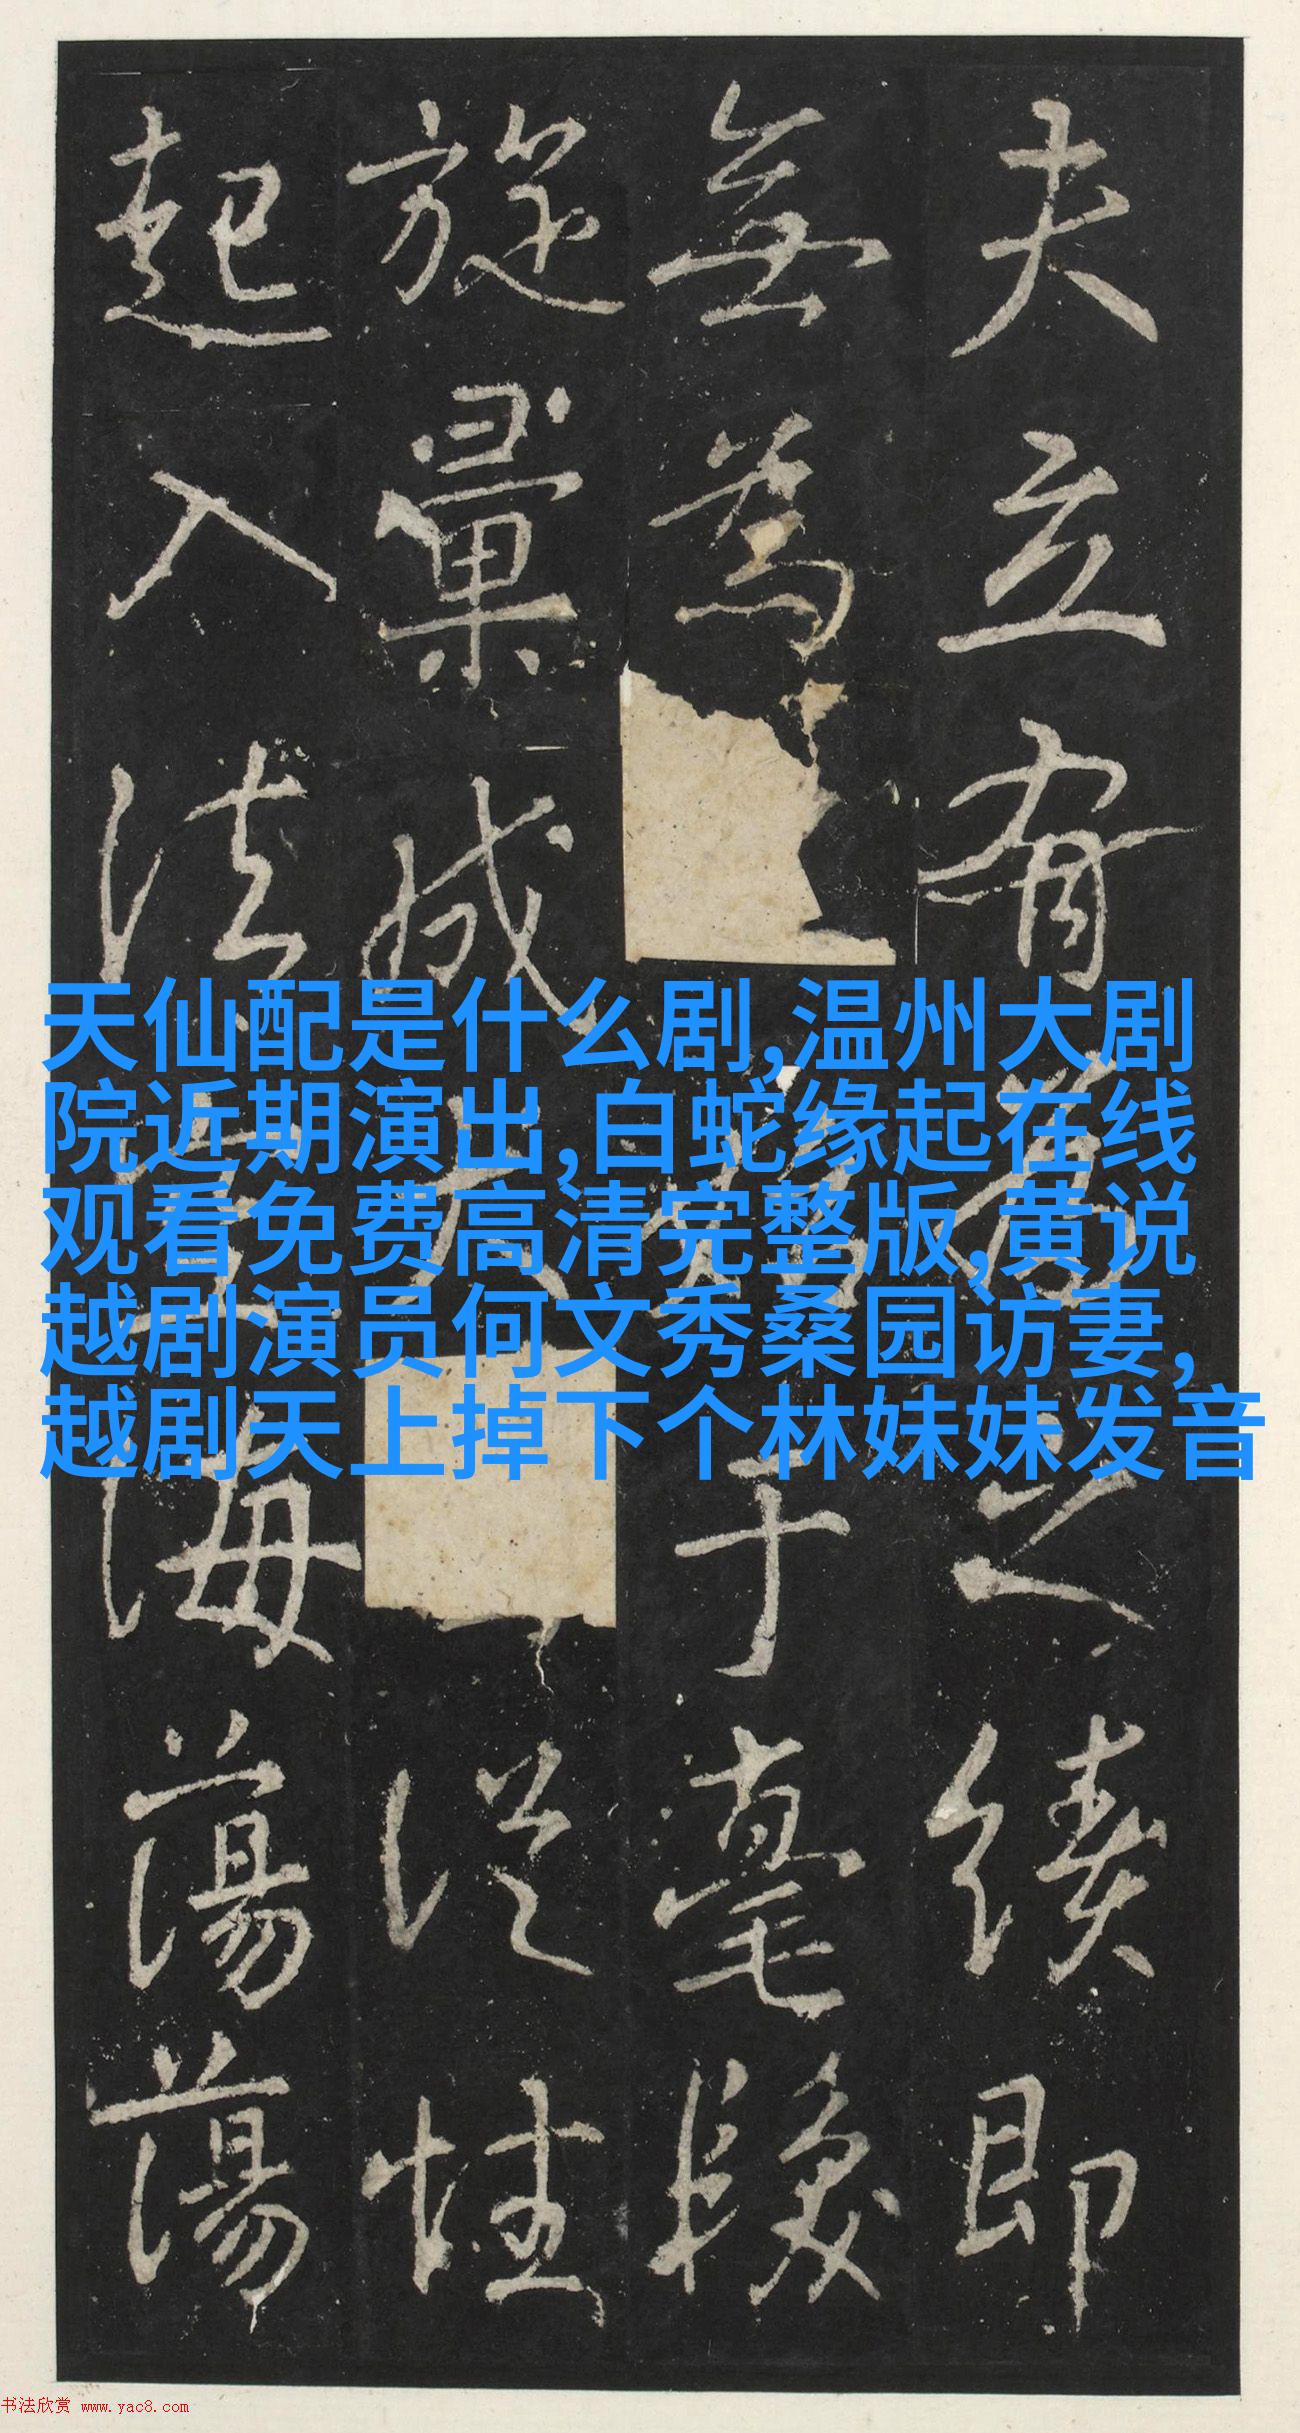 夫立有之續即
無為于毫
旋彙成從性
起入法海蕩蕩
天仙配是什么剧,温州大剧
院近期演出,白蛇缘起在线
观看免费高清完整版,黄说
越剧演员何文秀桑园访妻,
越剧天上掉下个林妹妹发音
书法欣赏 www.yac8.com